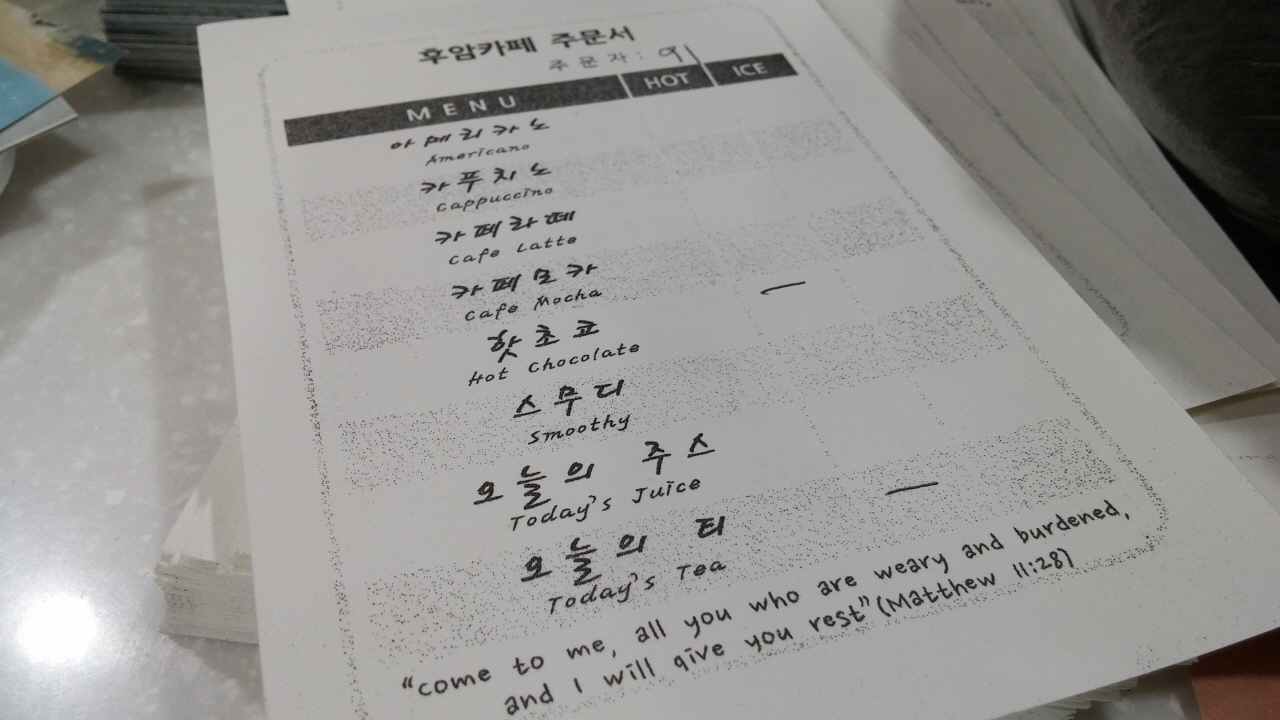 후암카페 주문서
주문자 : 이
MENU HOT ICE
아메리카노
Americano
카푸치노
cappuccino
카페라떼
cafe Latte
카페모카
cafe Mocha
핫초코
Hot chocolate
스무디
smoothy
오늘의 주스
Today's Juice
오늘의 티
Today's Tea
"come to me, all you who are weary and burdened,
and I will give you rest" (Matthew 11:28)